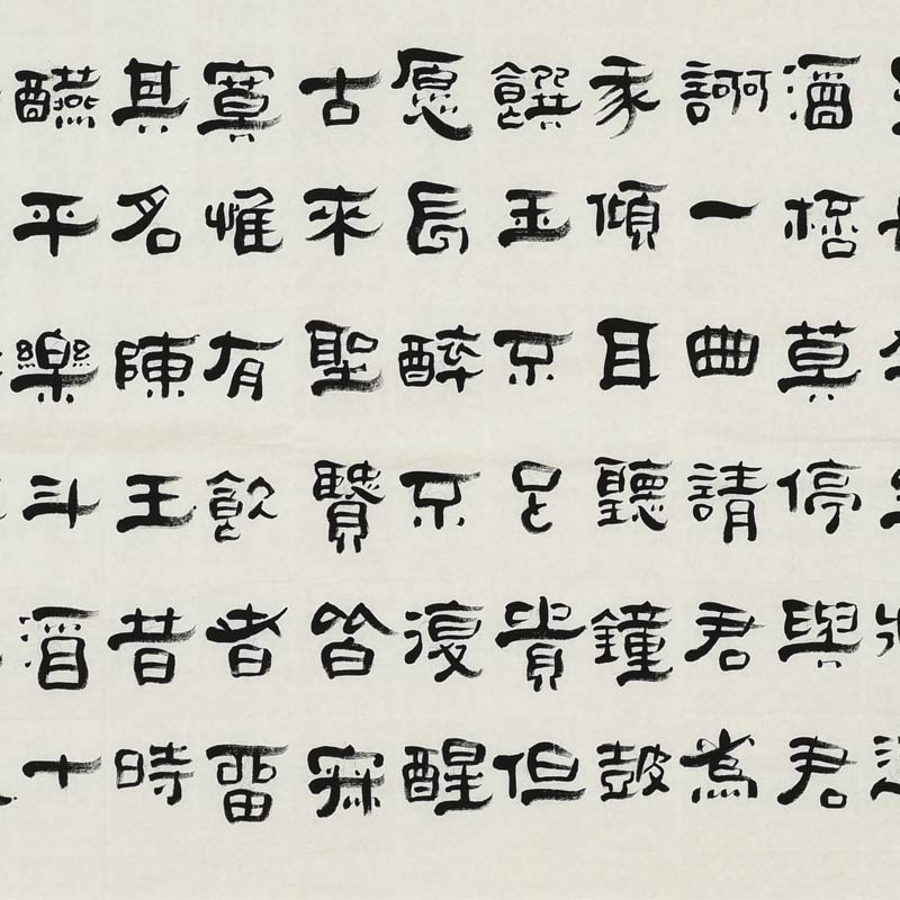 酒桮莫停與君
謌一曲請君為
我傾耳聽鐘鼓
饌玉不足貴但
愿長醉不復醒
古來聖賢皆寂
寞惟有飲者留
其名陳王昔時
醼平樂斗酒十